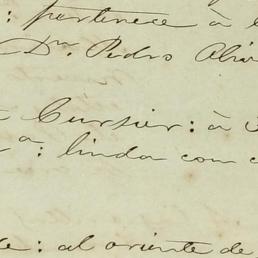 : pertenece à
Dn. Pedro
Cursier: à
a: linda con
: al oriente de